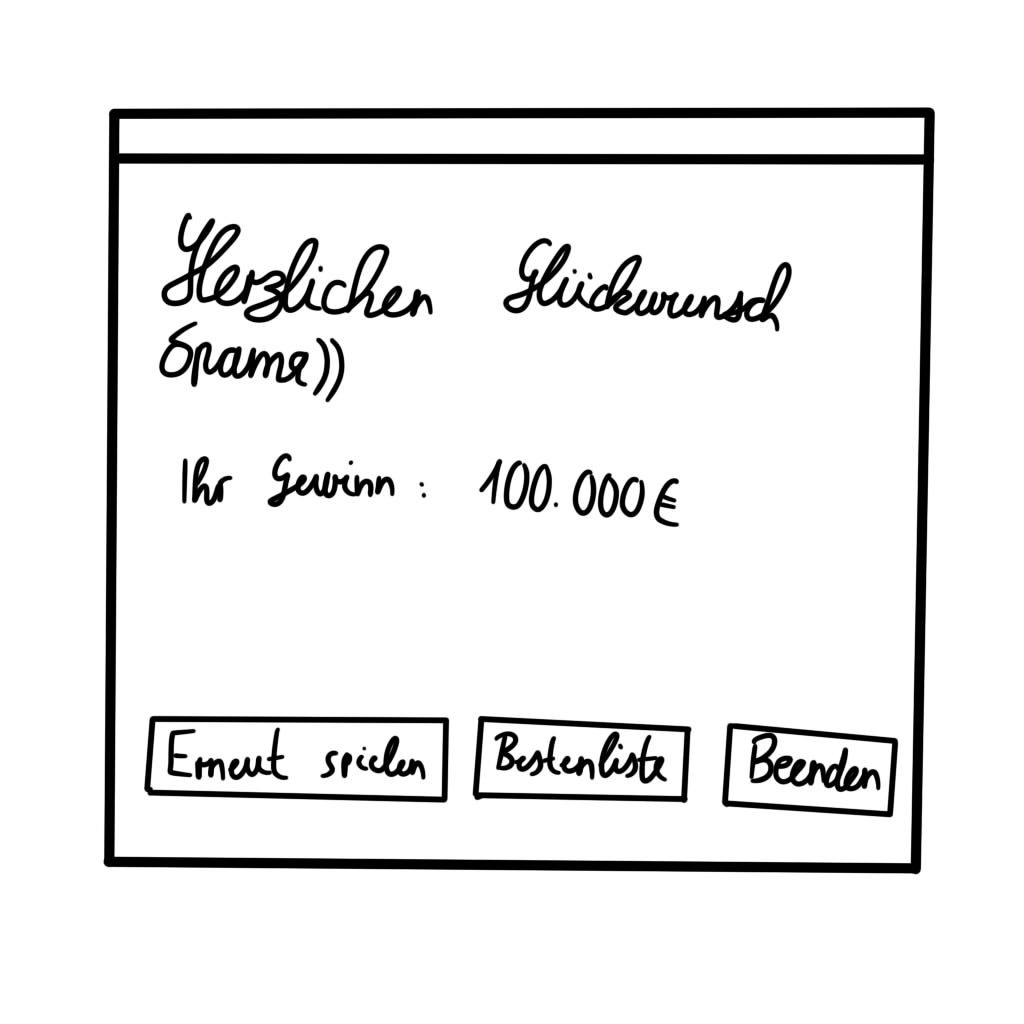 Herzlichen Glückwunsch
Ihr Gewinn : 100.000€
Erneut spielen
Bestenliste
Beenden